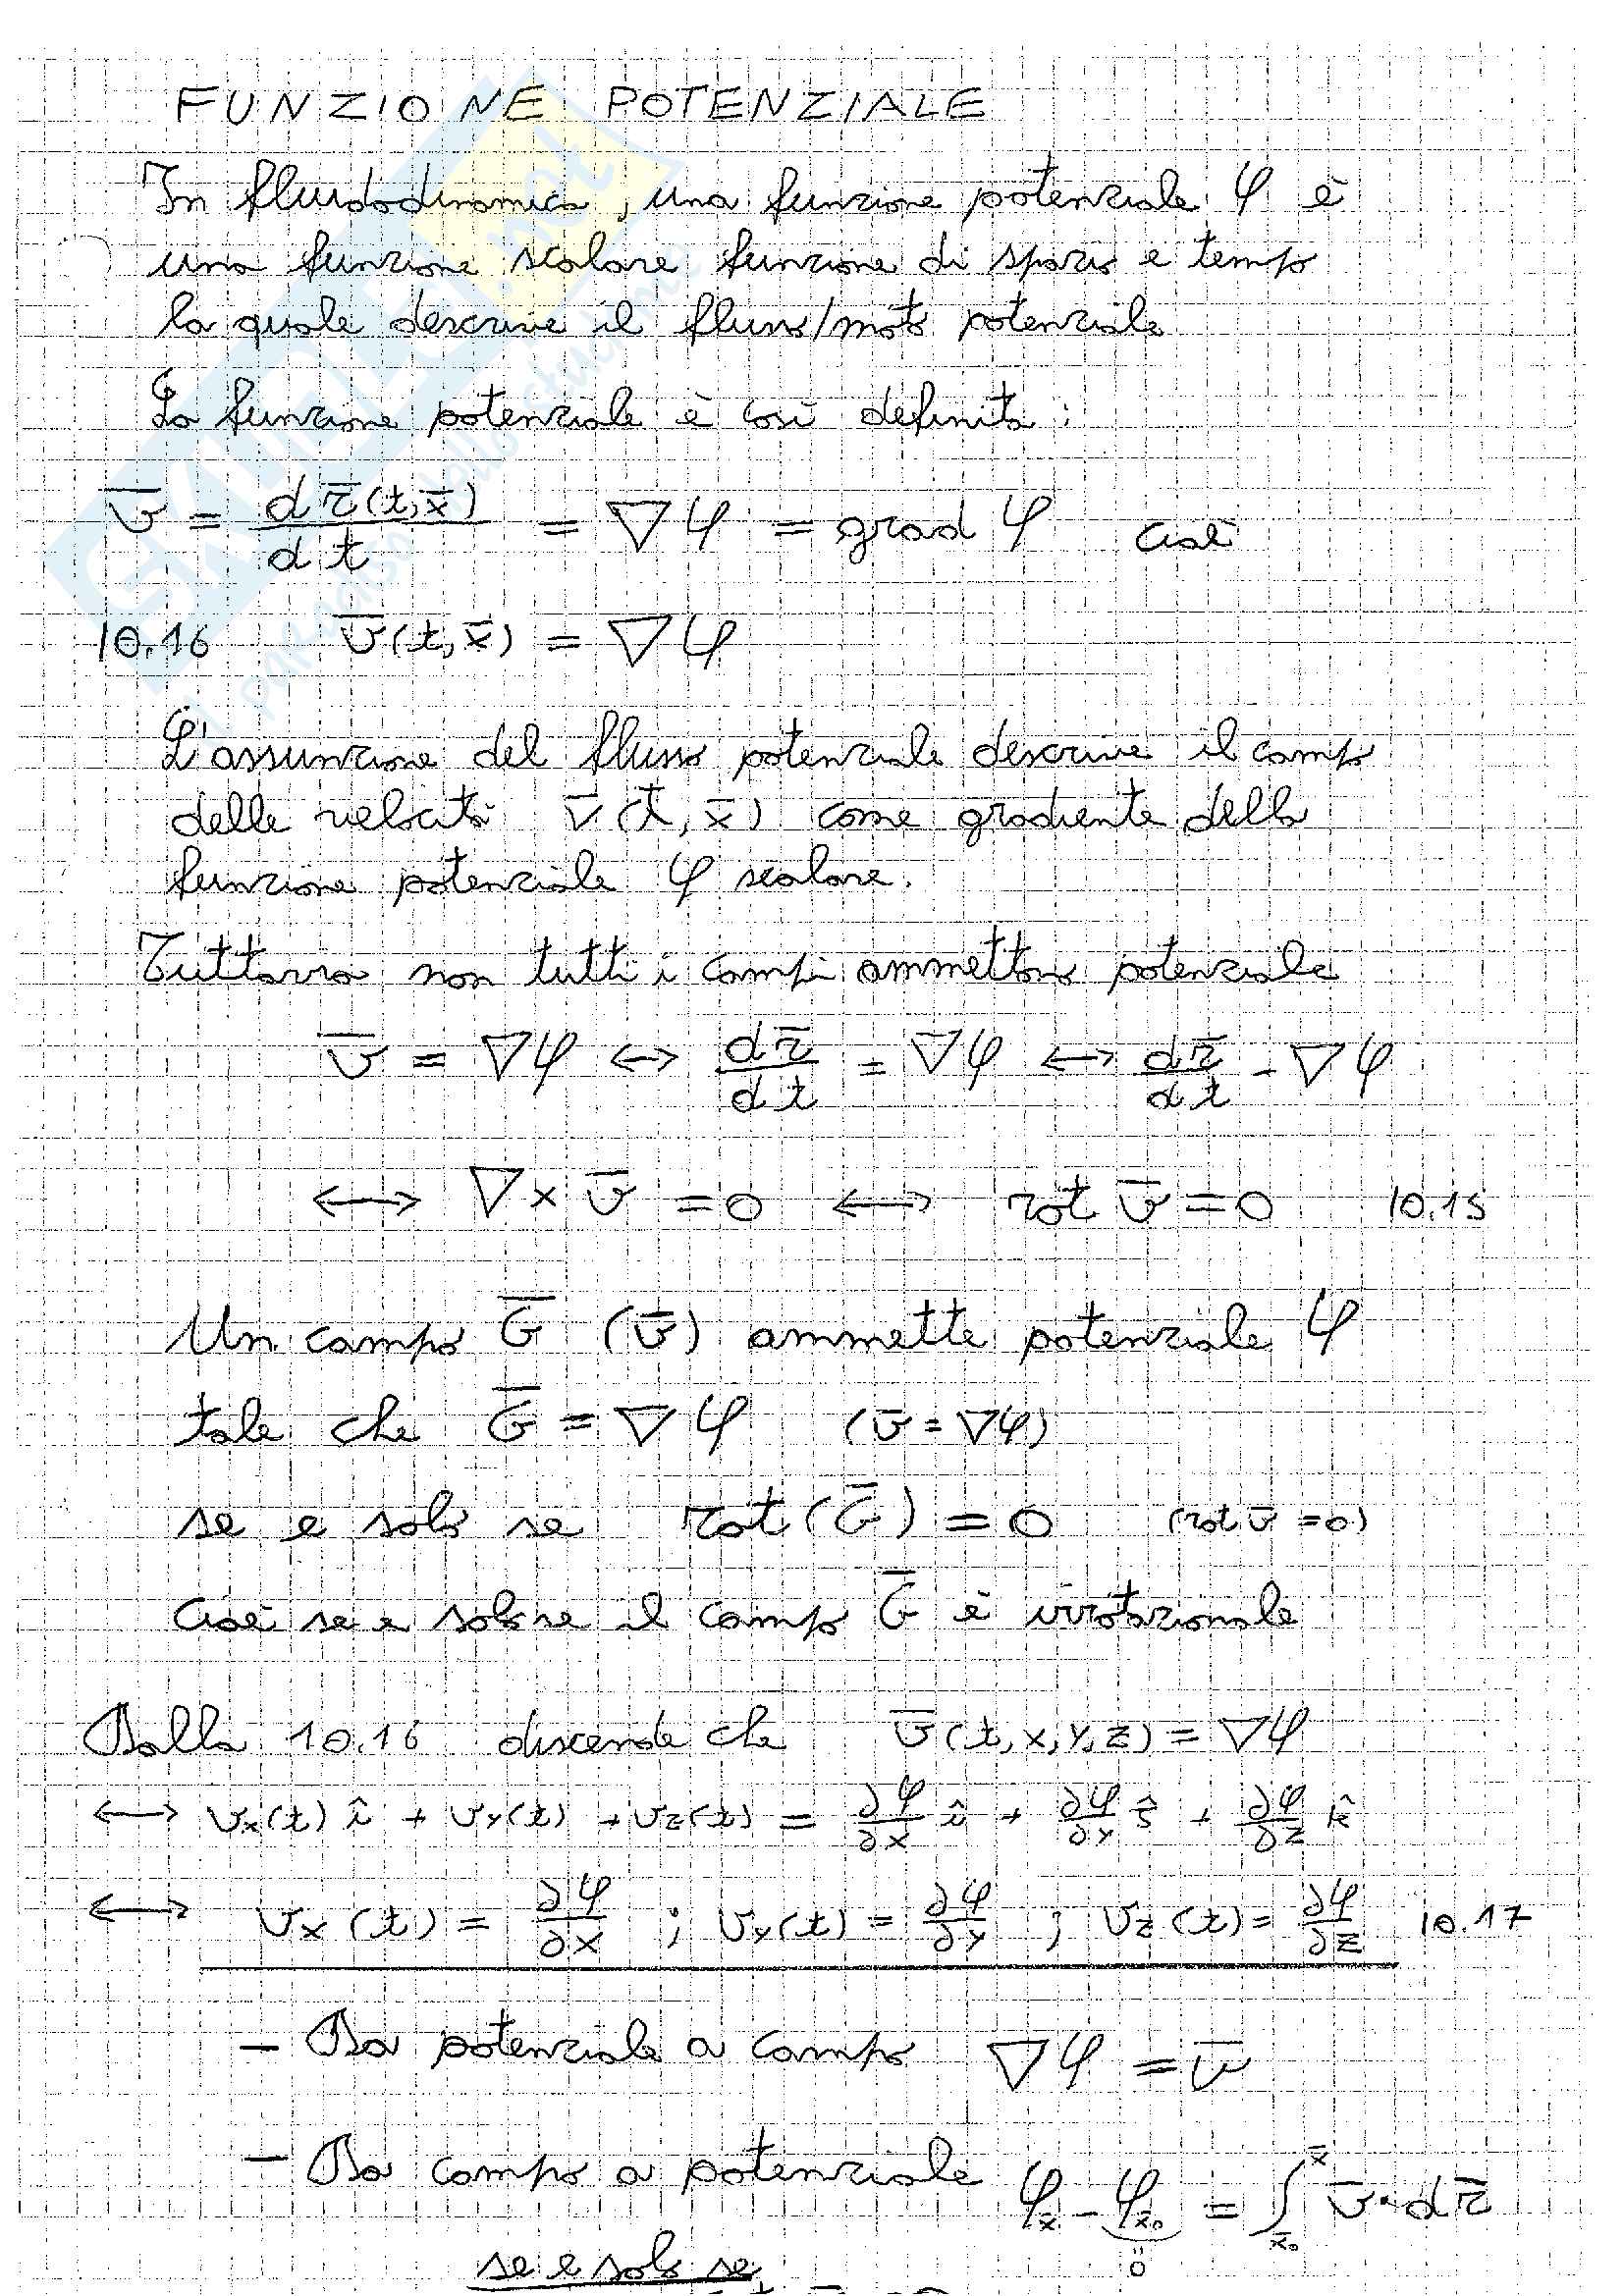 FUNZIONE POTENZIALE
In fluidodinamica, una funzione potenziale φ è
una funzione scalare funzione di spazio e tempo
la quale descrive il flusso/moto potenziale
La funzione potenziale è così definita:
v̅ = d r̅(t,x̅) / dt = ∇φ = grad φ cioè
10.16 v̅(t,x̅) = ∇φ
L'assunzione del flusso potenziale descrive il campo
delle velocità v̅(t,x̅) come gradiente della
funzione potenziale φ scalare.
Tuttavia non tutti i campi ammettono potenziale
v̅ = ∇φ ↔ d r̅ / dt = ∇φ ↔ d r̅ / dt - ∇φ
↔ ∇×v̅ = 0 ↔ rot v̅ = 0 10.15
Un campo G̅ (v̅) ammette potenziale φ
tale che G̅ = ∇φ (v̅ = ∇φ)
se e solo se rot(G̅) = 0 (rot v̅ = 0)
Cioè se e solo se il campo G̅ è irrotazionale
Dalla 10.16 discende che v̅(t,x,y,z) = ∇φ
↔ vx(t) î + vy(t) + vz(t) = ∂φ/∂x î + ∂φ/∂y ĵ + ∂φ/∂z k̂
↔ vx(t) = ∂φ/∂x ; vy(t) = ∂φ/∂y ; vz(t) = ∂φ/∂z 10.17
- Da potenziale a campo ∇φ = v̅
- Da campo a potenziale φx̅ - φx̅₀ = ∫x̅₀^x̅ v̅·d r̅
0
se e solo se